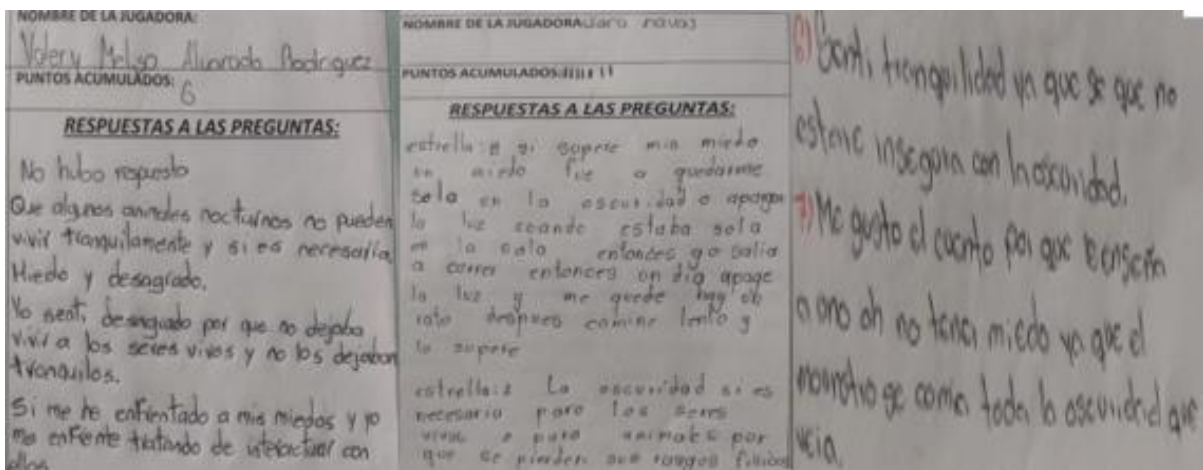 NOMBRE DE LA JUGADORA:
Valery Melisa Alvarado Rodriguez
PUNTOS ACUMULADOS: 6
RESPUESTAS A LAS PREGUNTAS:
No hubo respuesta
Que algunos animales nocturnos no pueden
vivir tranquilamente y si es necesaria.
Miedo y desagrado.
Yo sentí desagrado por que no dejaba
vivir a los seres vivos y no los dejaban
tranquilos.
Si me he enfrentado a mis miedos y yo
me enfrente tratando de interactuar con
ellos
NOMBRE DE LA JUGADORA:
PUNTOS ACUMULADOS:
RESPUESTAS A LAS PREGUNTAS:
estrella: si supere min miedo
miedo fue a quedarme
sola en la oscuridad o apagar
la luz cuando estaba sola
en la sala entonces yo salia
a correr entonces un dia apage
la luz y me quede hay un
rato despues camine lento y
lo supere
estrella:2 La oscuridad si es
necesaria para los seres
vivos o para animales por
que se pierden sus rasgos
6) Senti tranquilidad ya que se que no
estare insegura con la oscuridad.
7) Me gusto el cuento por que
a uno oh no tener miedo ya que el
mounstro se comia toda la oscuridad que
veia.